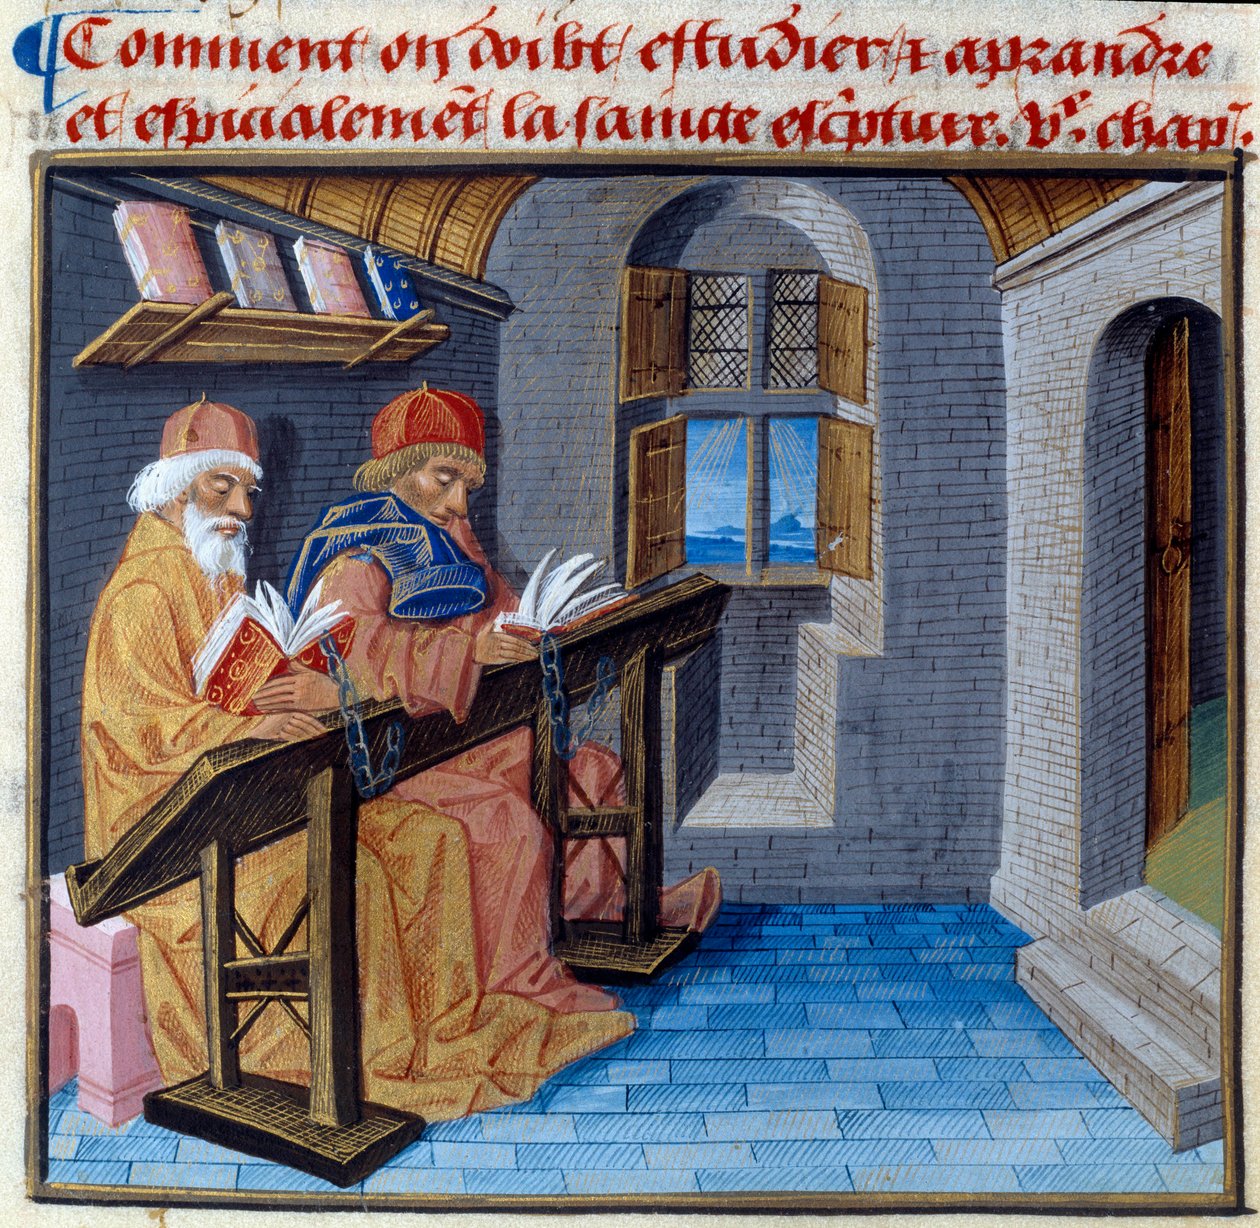 Comment on doibt estudier et aprandre
et espicialemẽt la saincte escpture. vͤ. chap̄.